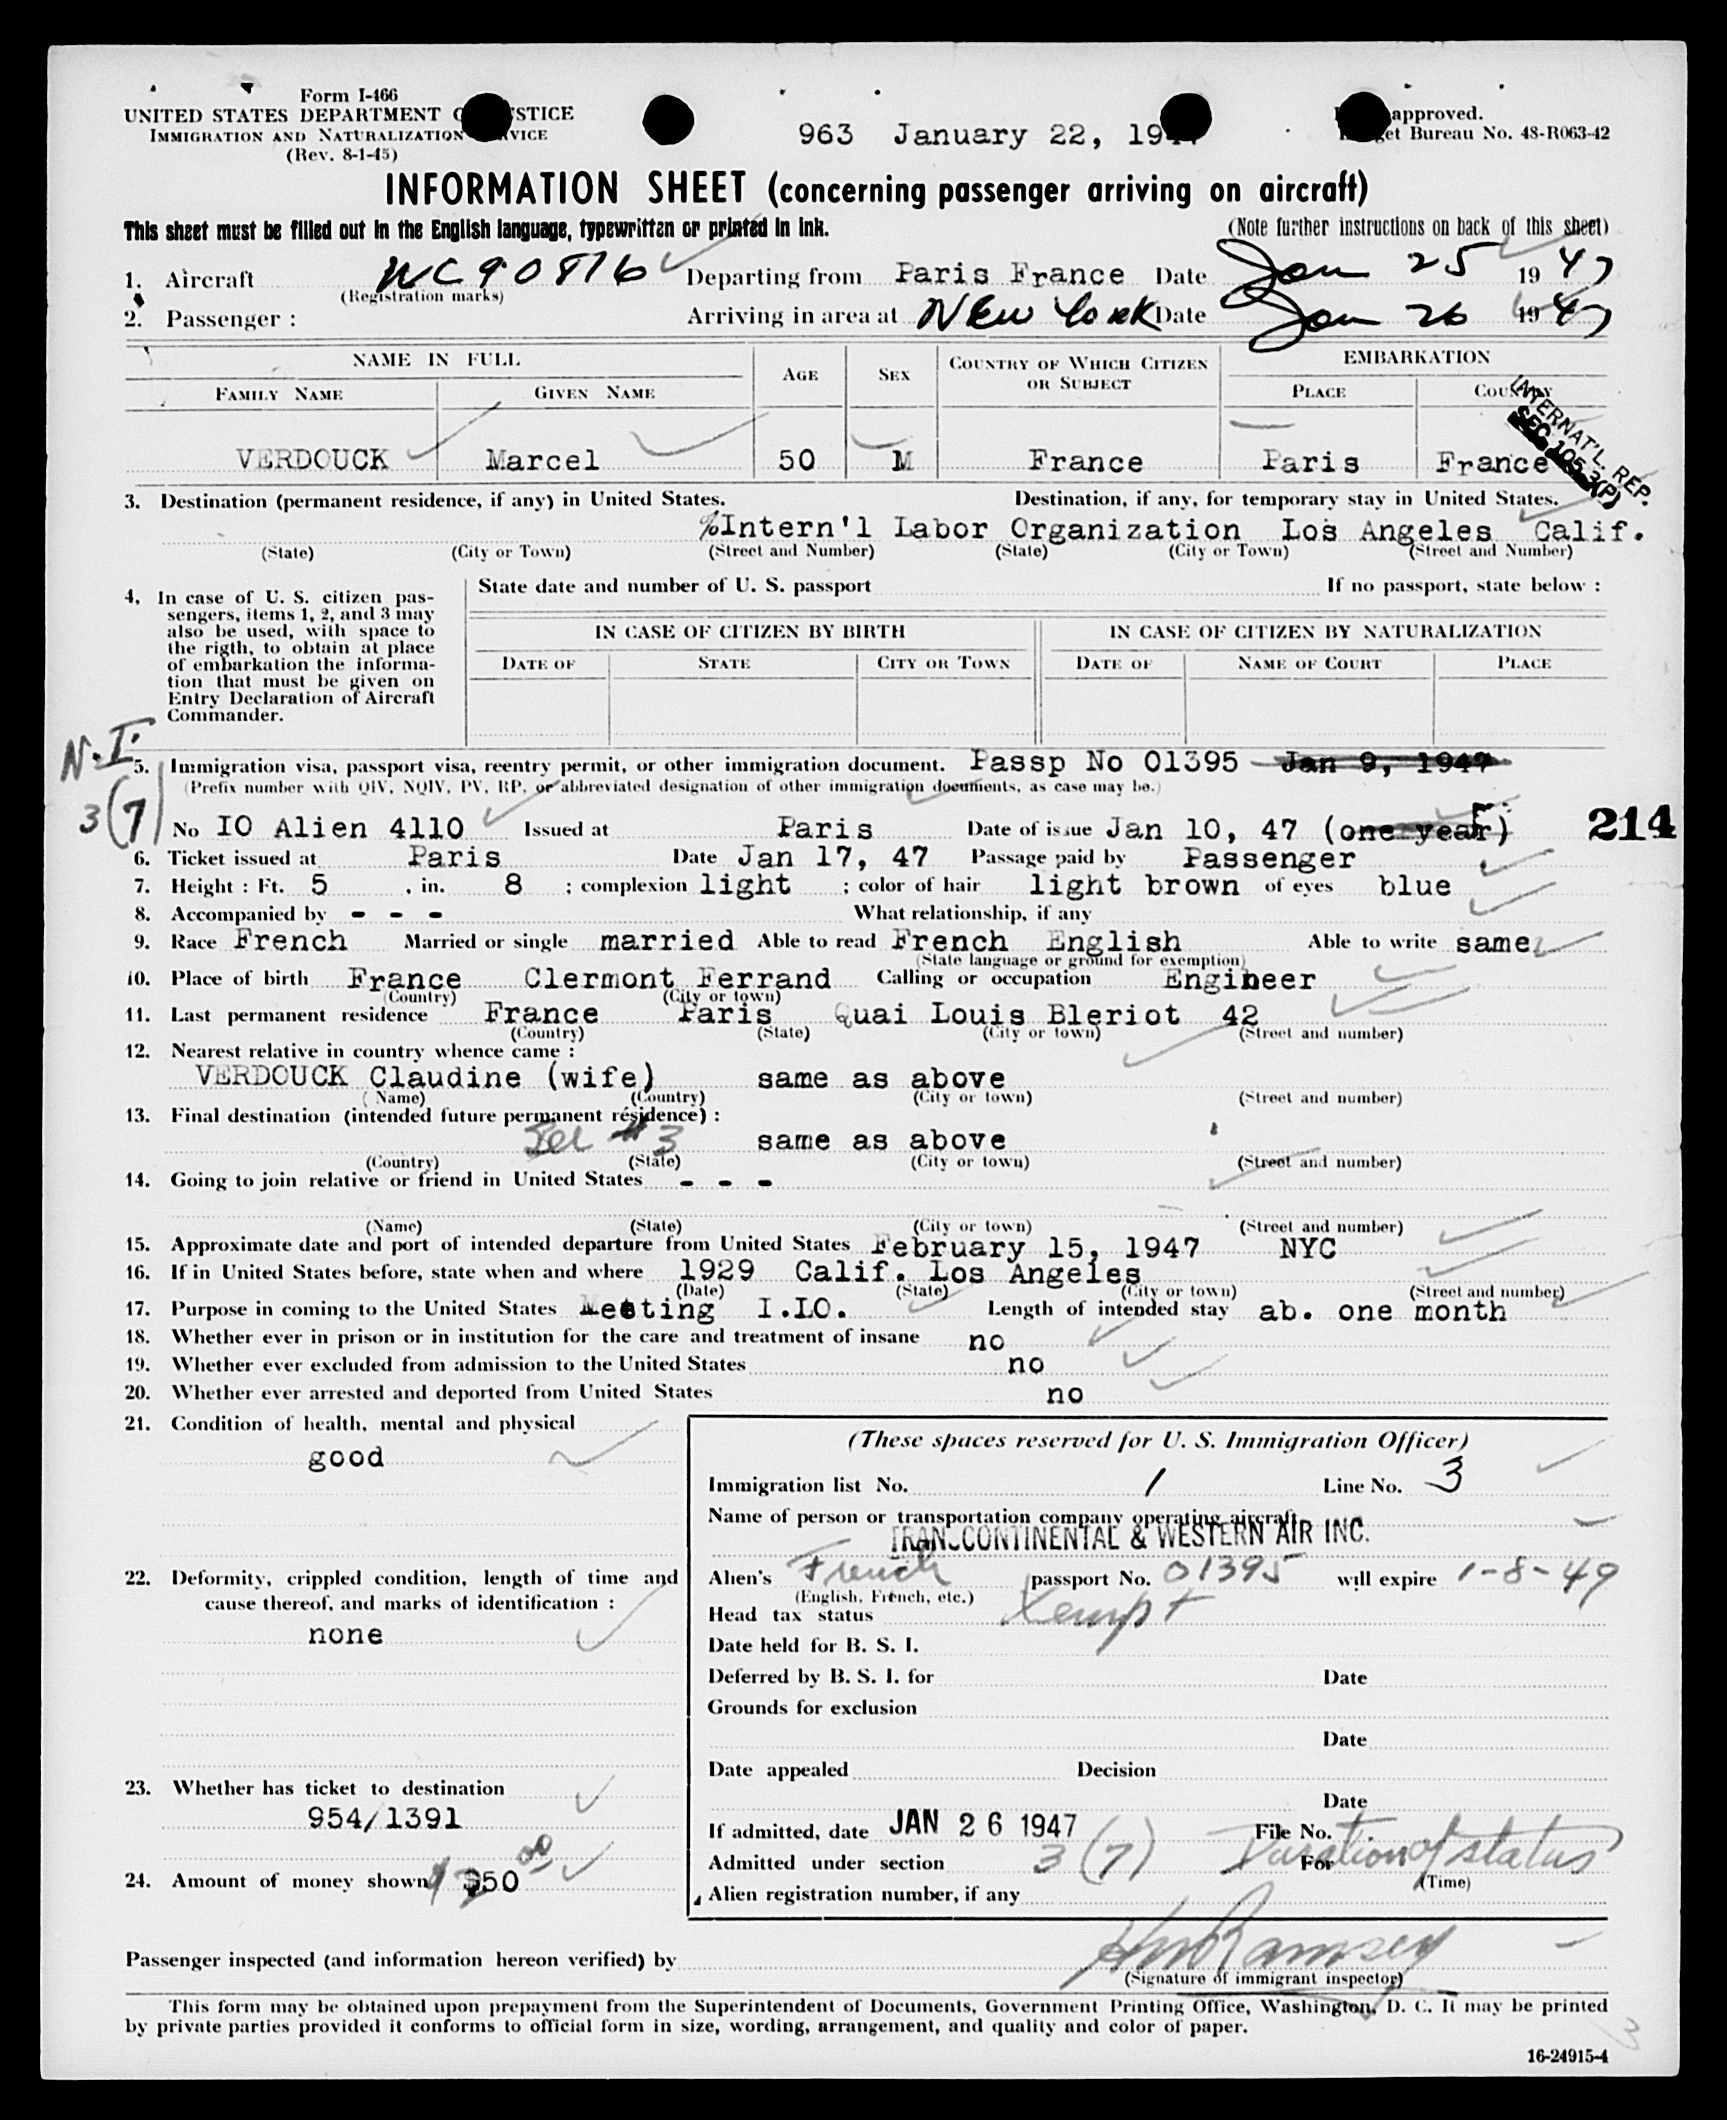 Form I-466
UNITED STATES DEPARTMENT OF JUSTICE
IMMIGRATION AND NATURALIZATION SERVICE
(Rev. 8-1-45)
963 January 22, 19
approved.
Bureau No. 48-R063-42
INFORMATION SHEET (concerning passenger arriving on aircraft)
This sheet must be filled out in the English language, typewritten or printed in ink.
(Note further instructions on back of this sheet)
1. Aircraft NC90816 Departing from Paris France Date Jan 25 1947
(Registration marks)
2. Passenger : Arriving in area at New York Date Jan 26 1947
NAME IN FULL AGE SEX COUNTRY OF WHICH CITIZEN OR SUBJECT EMBARKATION
FAMILY NAME GIVEN NAME PLACE COUNTRY
INTERNAT'L. REP.
SEC. 105.3(P)
VERDOUCK Marcel 50 M France Paris France
3. Destination (permanent residence, if any) in United States. Destination, if any, for temporary stay in United States.
%Intern'l Labor Organization Los Angeles Calif.
(State) (City or Town) (Street and Number) (State) (City or Town) (Street and Number)
4, In case of U. S. citizen pas-
sengers, items 1, 2, and 3 may
also be used, with space to
the rigth, to obtain at place
of embarkation the informa-
tion that must be given on
Entry Declaration of Aircraft
Commander.
State date and number of U. S. passport If no passport, state below :
IN CASE OF CITIZEN BY BIRTH IN CASE OF CITIZEN BY NATURALIZATION
DATE OF STATE CITY OR TOWN DATE OF NAME OF COURT PLACE
N.I.
5. Immigration visa, passport visa, reentry permit, or other immigration document. Passp No 01395 Jan 9, 1947
(Prefix number with QIV, NQIV, PV, RP, or abbreviated designation of other immigration documents, as case may be.)
3(7) No IO Alien 4110 Issued at Paris Date of issue Jan 10, 47 (one year) 214
6. Ticket issued at Paris Date Jan 17, 47 Passage paid by Passenger
7. Height : Ft. 5 , in. 8 ; complexion light ; color of hair light brown of eyes blue
8. Accompanied by - - - What relationship, if any
9. Race French Married or single married Able to read French English Able to write same
(State language or ground for exemption)
10. Place of birth France Clermont Ferrand Calling or occupation Engineer
(Country) (City or town)
11. Last permanent residence France Paris Quai Louis Bleriot 42
(Country) (State) (City or town) (Street and number)
12. Nearest relative in country whence came :
VERDOUCK Claudine (wife) same as above
(Name) (Country) (City or town) (Street and number)
13. Final destination (intended future permanent résidence) :
See #3 same as above
(Country) (State) (City or town) (Street and number)
14. Going to join relative or friend in United States - - -
(Name) (State) (City or town) (Street and number)
15. Approximate date and port of intended departure from United States February 15, 1947 NYC
16. If in United States before, state when and where 1929 Calif. Los Angeles
(Date) (State) (City or town) (Street and number)
17. Purpose in coming to the United States Meeting I.LO. Length of intended stay ab. one month
18. Whether ever in prison or in institution for the care and treatment of insane no
19. Whether ever excluded from admission to the United States no
20. Whether ever arrested and deported from United States no
21. Condition of health, mental and physical
good
22. Deformity, crippled condition, length of time and
cause thereof, and marks of identification :
none
23. Whether has ticket to destination
954/1391
24. Amount of money shown $50
(These spaces reserved for U. S. Immigration Officer)
Immigration list No. 1 Line No. 3
Name of person or transportation company operating aircraft
TRANSCONTINENTAL & WESTERN AIR INC.
Alien's French passport No. 01395 will expire 1-8-49
(English, French, etc.)
Head tax status Xempt
Date held for B. S. I.
Deferred by B. S. I. for Date
Grounds for exclusion
Date
Date appealed Decision
Date
If admitted, date JAN 26 1947 File No.
Admitted under section 3(7) For Duration of status
(Time)
Alien registration number, if any
Passenger inspected (and information hereon verified) by Ramsey
(Signature of immigrant inspector)
This form may be obtained upon prepayment from the Superintendent of Documents, Government Printing Office, Washington, D. C. It may be printed
by private parties provided it conforms to official form in size, wording, arrangement, and quality and color of paper.
3
16-24915-4